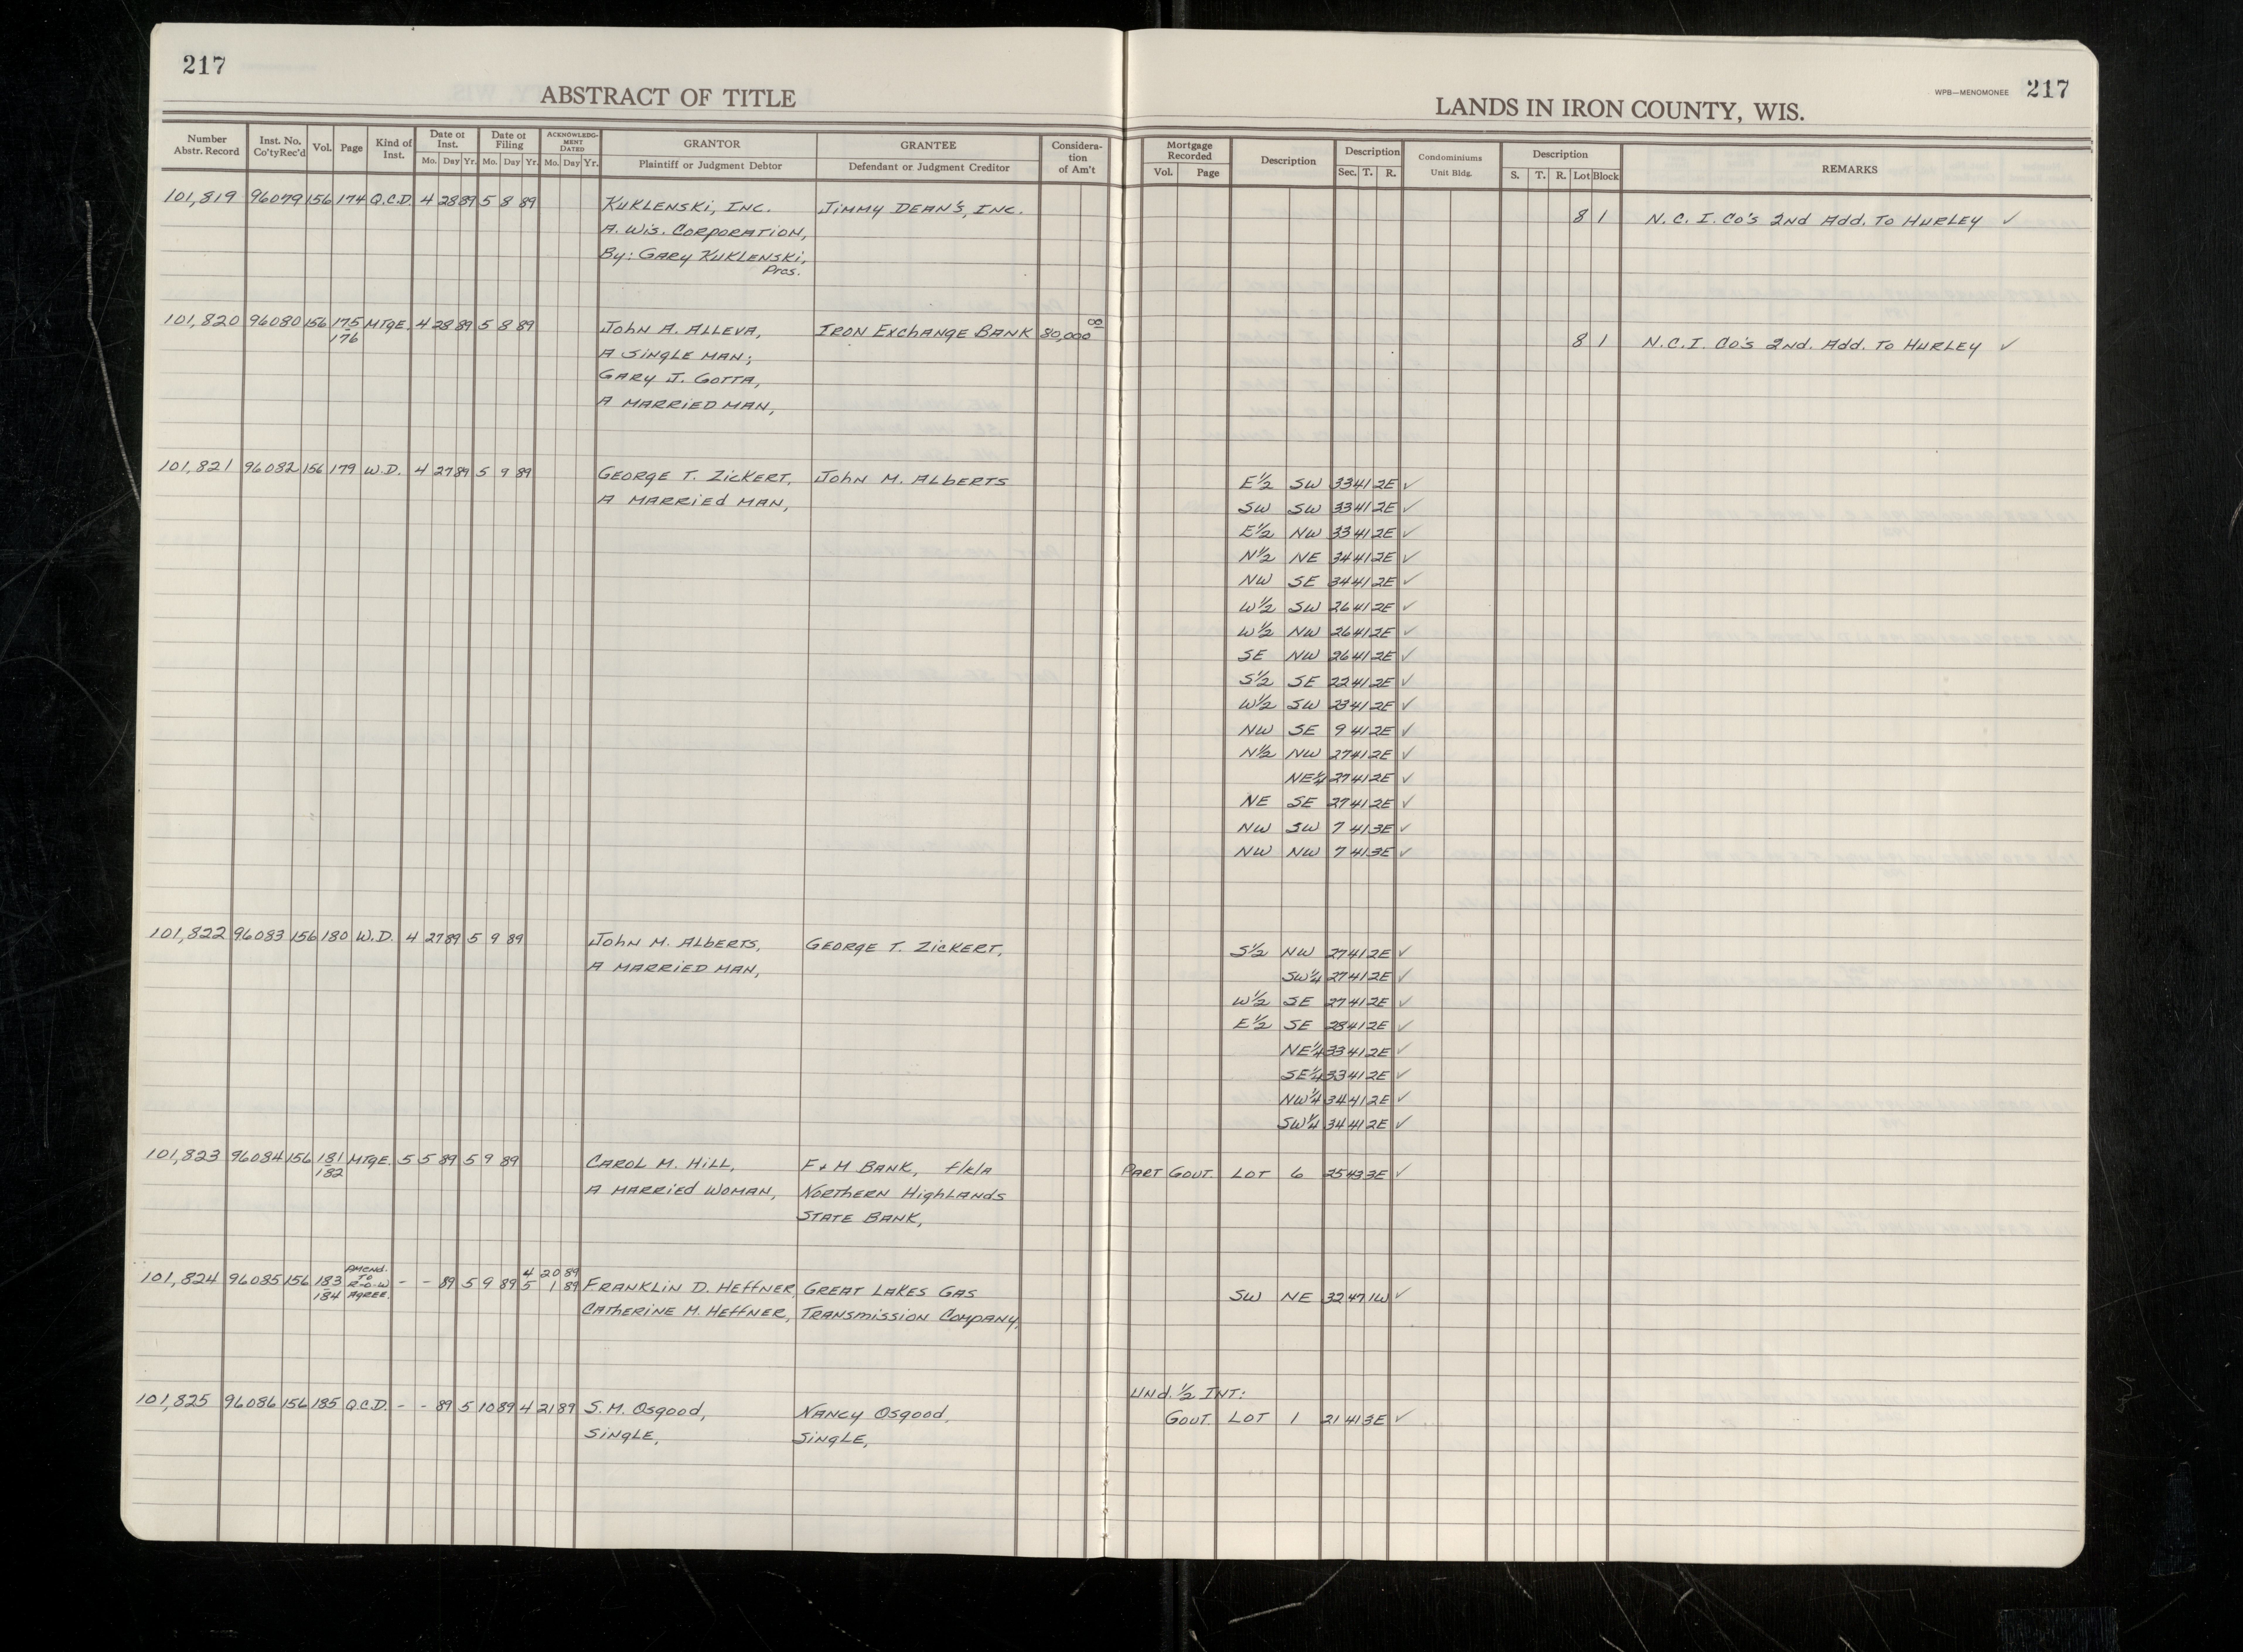 217
ABSTRACT OF TITLE
LANDS IN IRON COUNTY, WIS.
WPB—MENOMONEE 217
Number Abstr. Record | Inst. No. Co'tyRec'd | Vol. | Page | Kind of Inst. | Date of Inst. Mo. Day Yr. | Date of Filing Mo. Day Yr. | ACKNOWLEDGMENT DATED Mo. Day Yr. | GRANTOR Plaintiff or Judgment Debtor | GRANTEE Defendant or Judgment Creditor | Consideration of Am't | Mortgage Recorded Vol. Page | Description | Description Sec. T. R. | Condominiums Unit Bldg. | Description S. T. R. Lot Block | REMARKS
101,819 96079 156 174 Q.C.D. 4 28 89 5 8 89 KUKLENSKI, INC. JIMMY DEAN'S, INC. 8 1 N.C.I. CO'S 2ND ADD. TO HURLEY ✓
A. WIS. CORPORATION,
BY: GARY KUKLENSKI,
Pres.
101,820 96080 156 175 MTGE. 4 28 89 5 8 89 JOHN A. ALLEVA, IRON EXCHANGE BANK 80,000 00 8 1 N.C.I. CO'S 2ND. ADD. TO HURLEY ✓
176 A SINGLE MAN;
GARY J. GOTTA,
A MARRIED MAN,
101,821 96082 156 179 W.D. 4 27 89 5 9 89 GEORGE T. ZICKERT, JOHN M. ALBERTS E½ SW 33 41 2E ✓
A MARRIED MAN, SW SW 33 41 2E ✓
E½ NW 33 41 2E ✓
N½ NE 34 41 2E ✓
NW SE 34 41 2E ✓
W½ SW 26 41 2E ✓
W½ NW 26 41 2E ✓
SE NW 26 41 2E ✓
S½ SE 22 41 2E ✓
W½ SW 23 41 2E ✓
NW SE 9 41 2E ✓
N½ NW 27 41 2E ✓
NE¼ 27 41 2E ✓
NE SE 27 41 2E ✓
NW SW 7 41 3E ✓
NW NW 7 41 3E ✓
101,822 96083 156 180 W.D. 4 27 89 5 9 89 JOHN M. ALBERTS, GEORGE T. ZICKERT, S½ NW 27 41 2E ✓
A MARRIED MAN, SW¼ 27 41 2E ✓
W½ SE 27 41 2E ✓
E½ SE 28 41 2E ✓
NE¼ 33 41 2E ✓
SE¼ 33 41 2E ✓
NW¼ 34 41 2E ✓
SW¼ 34 41 2E ✓
101,823 96084 156 181 MTGE. 5 5 89 5 9 89 CAROL M. HILL, F & M BANK, f/k/a PART GOVT. LOT 6 25 43 3E ✓
182 A MARRIED WOMAN, NORTHERN HIGHLANDS
STATE BANK,
101,824 96085 156 183 184 AMEND. TO R-O-W AGREE. - - 89 5 9 89 4 20 89 5 1 89 FRANKLIN D. HEFFNER, GREAT LAKES GAS SW NE 32 47 1W ✓
CATHERINE M. HEFFNER, TRANSMISSION COMPANY,
UND. ½ INT:
101,825 96086 156 185 Q.C.D. - - 89 5 10 89 4 21 89 S. M. OSGOOD, NANCY OSGOOD, GOVT. LOT 1 21 41 3E ✓
SINGLE, SINGLE,